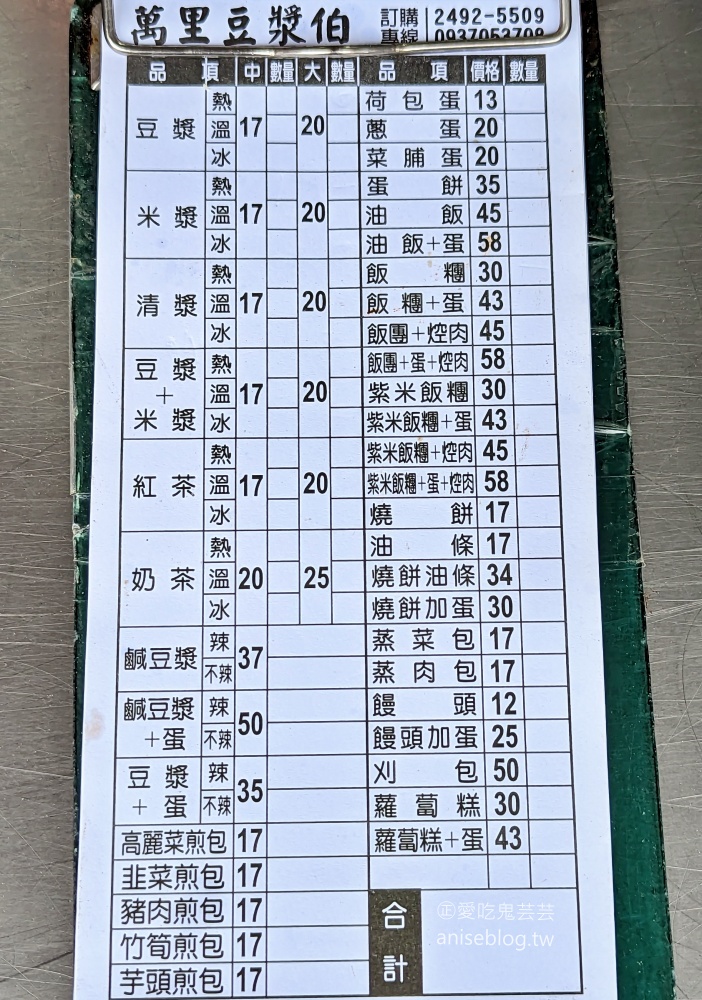 萬里豆漿伯 訂購專線 2492-5509
0937053709
品項 中 數量 大 數量 品項 價格 數量
豆漿 熱 溫 冰 17 20
米漿 熱 溫 冰 17 20
清漿 熱 溫 冰 17 20
豆漿+米漿 熱 溫 冰 17 20
紅茶 熱 溫 冰 17 20
奶茶 熱 溫 冰 20 25
鹹豆漿 辣 不辣 37
鹹豆漿+蛋 辣 不辣 50
豆漿+蛋 辣 不辣 35
高麗菜煎包 17
韭菜煎包 17
豬肉煎包 17
竹筍煎包 17
芋頭煎包 17
荷包蛋 13
蔥蛋 20
菜脯蛋 20
蛋餅 35
油飯 45
油飯+蛋 58
飯糰 30
飯糰+蛋 43
飯團+焢肉 45
飯團+蛋+焢肉 58
紫米飯糰 30
紫米飯糰+蛋 43
紫米飯糰+焢肉 45
紫米飯糰+蛋+焢肉 58
燒餅 17
油條 17
燒餅油條 34
燒餅加蛋 30
蒸菜包 17
蒸肉包 17
饅頭 12
饅頭加蛋 25
刈包 50
蘿蔔糕 30
蘿蔔糕+蛋 43
合計
㊣愛吃鬼芸芸
aniseblog.tw